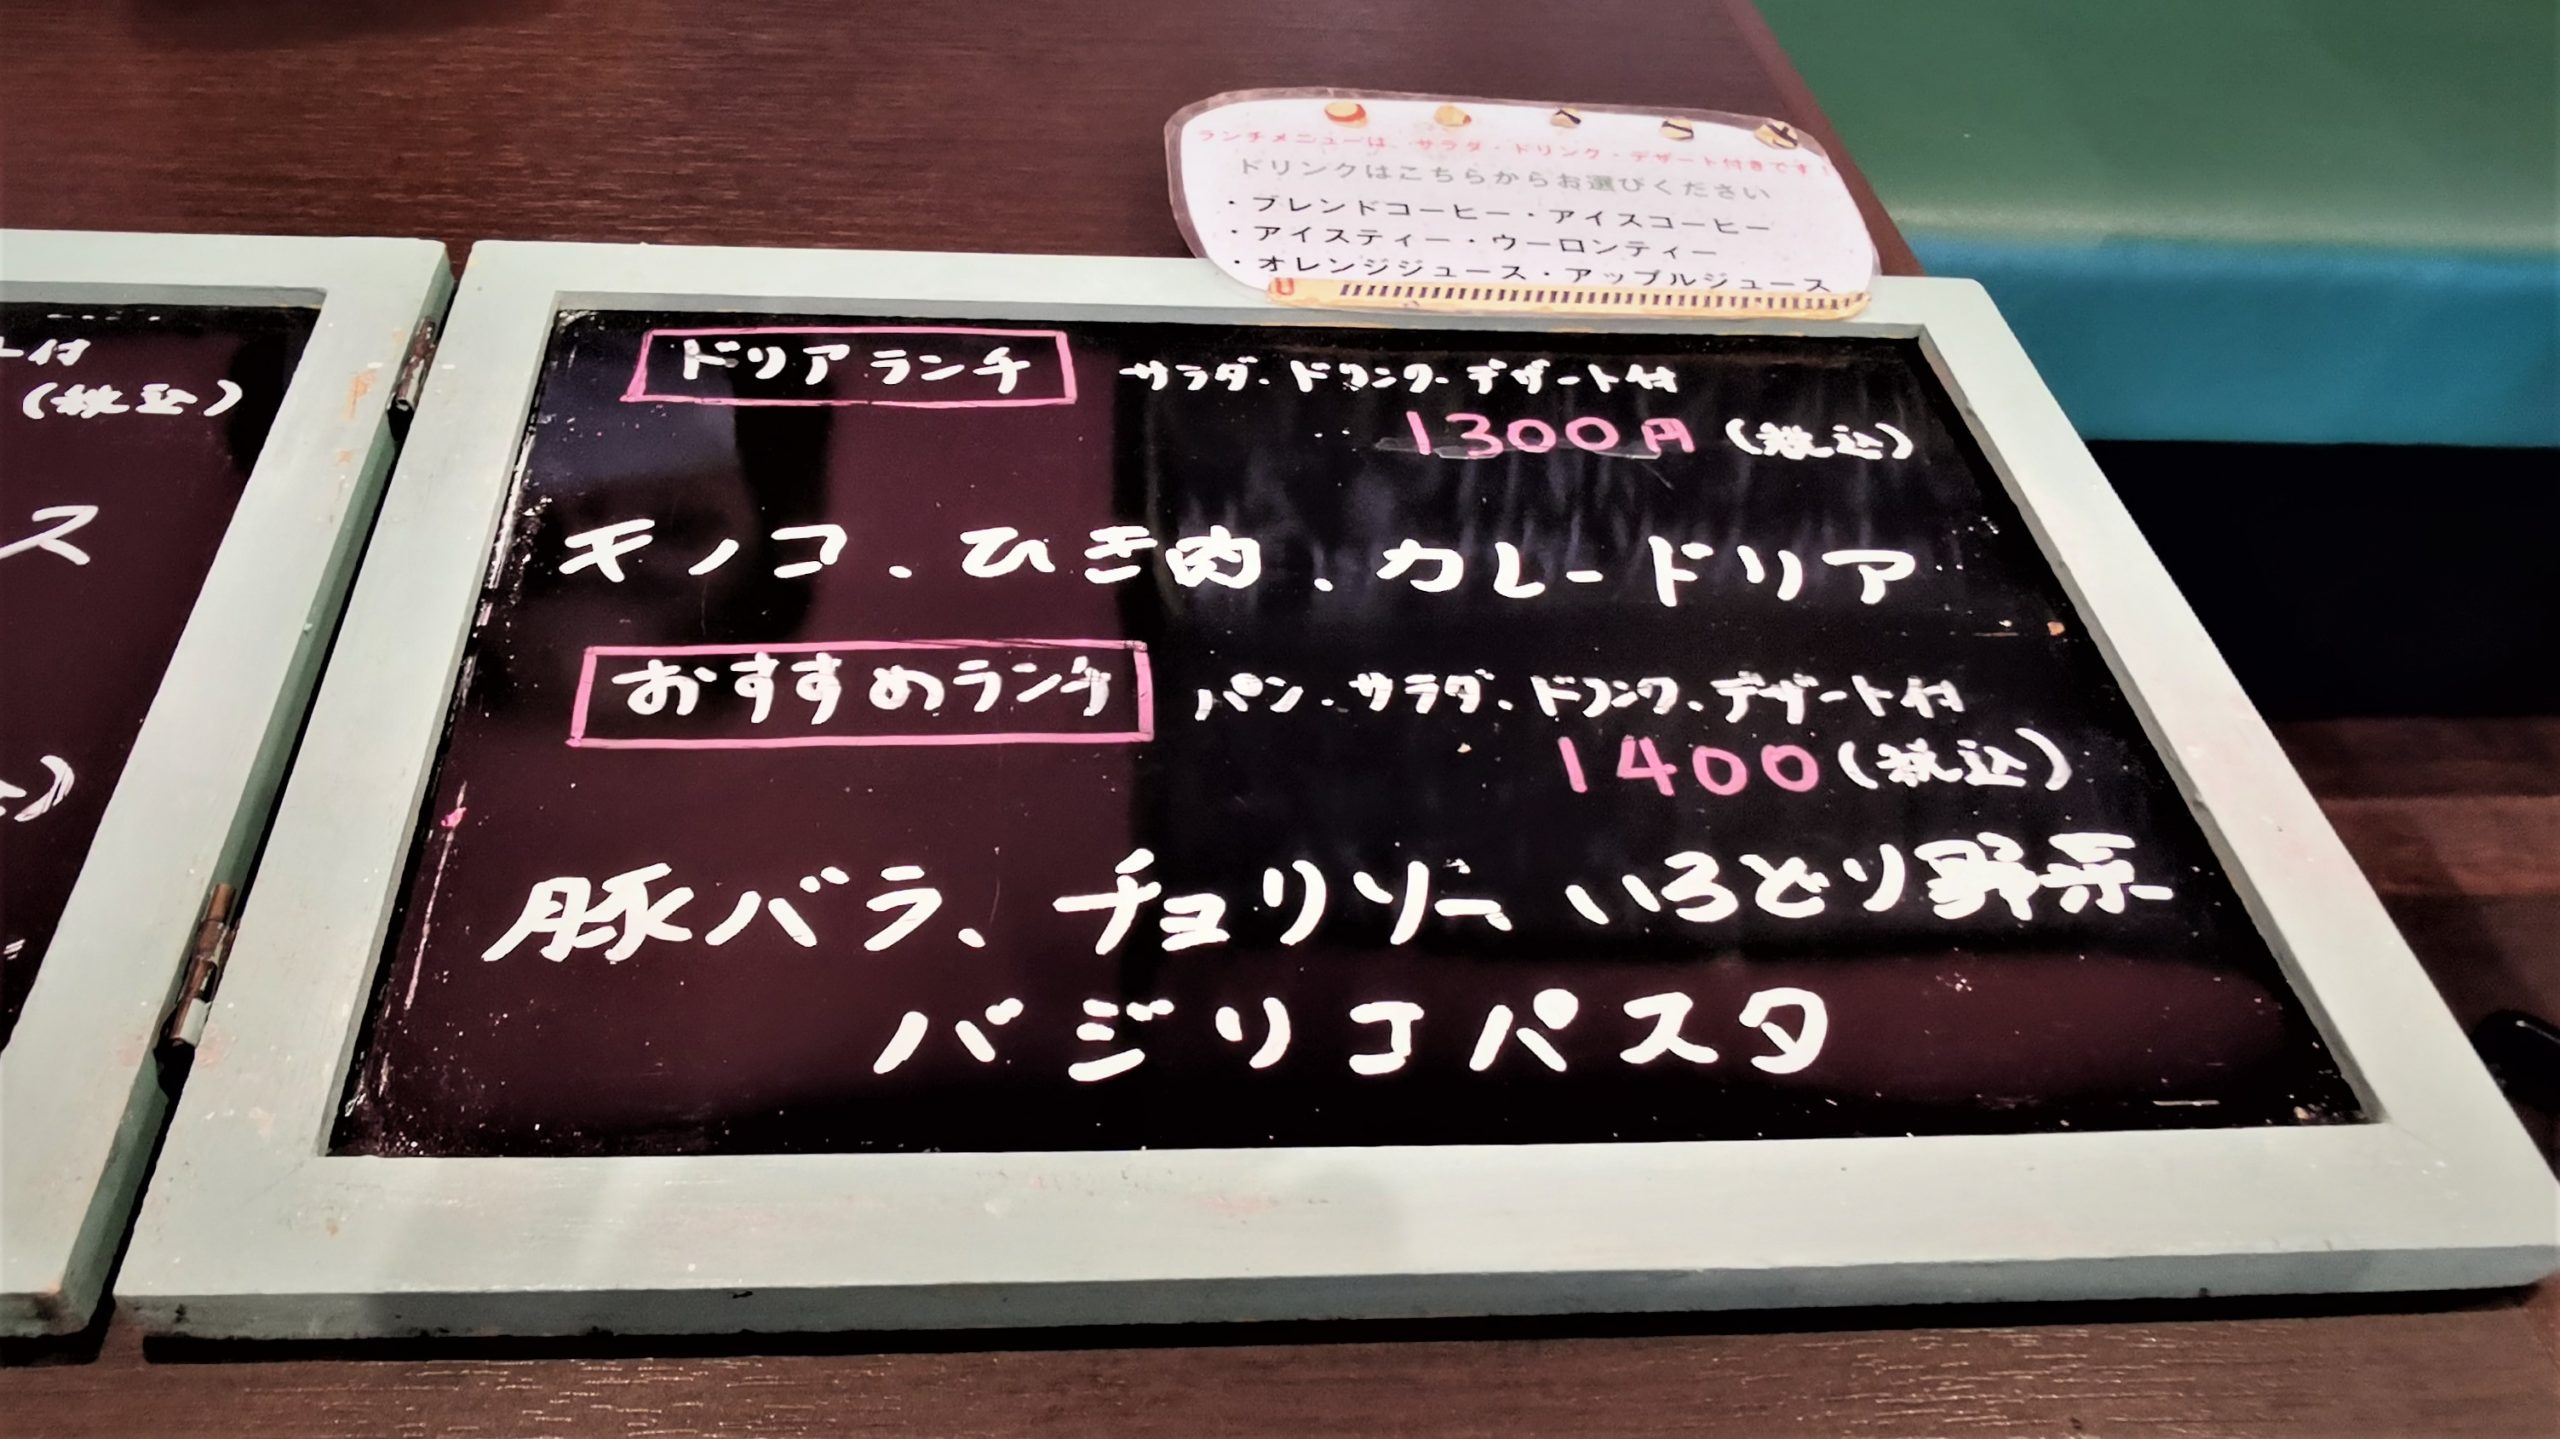 ト付
(税込)
ス
ランチメニューは、サラダ・ドリンク・デザート付きです!
ドリンクはこちらからお選びください
・ブレンドコーヒー・アイスコーヒー
・アイスティー・ウーロンティー
・オレンジジュース・アップルジュース
ドリアランチ サラダ・ドリンク・デザート付
1300円(税込)
キノコ、ひき肉、カレードリア
おすすめランチ パン・サラダ・ドリンク・デザート付
1400(税込)
豚バラ、チョリソー、いろどり野菜
バジリコパスタ